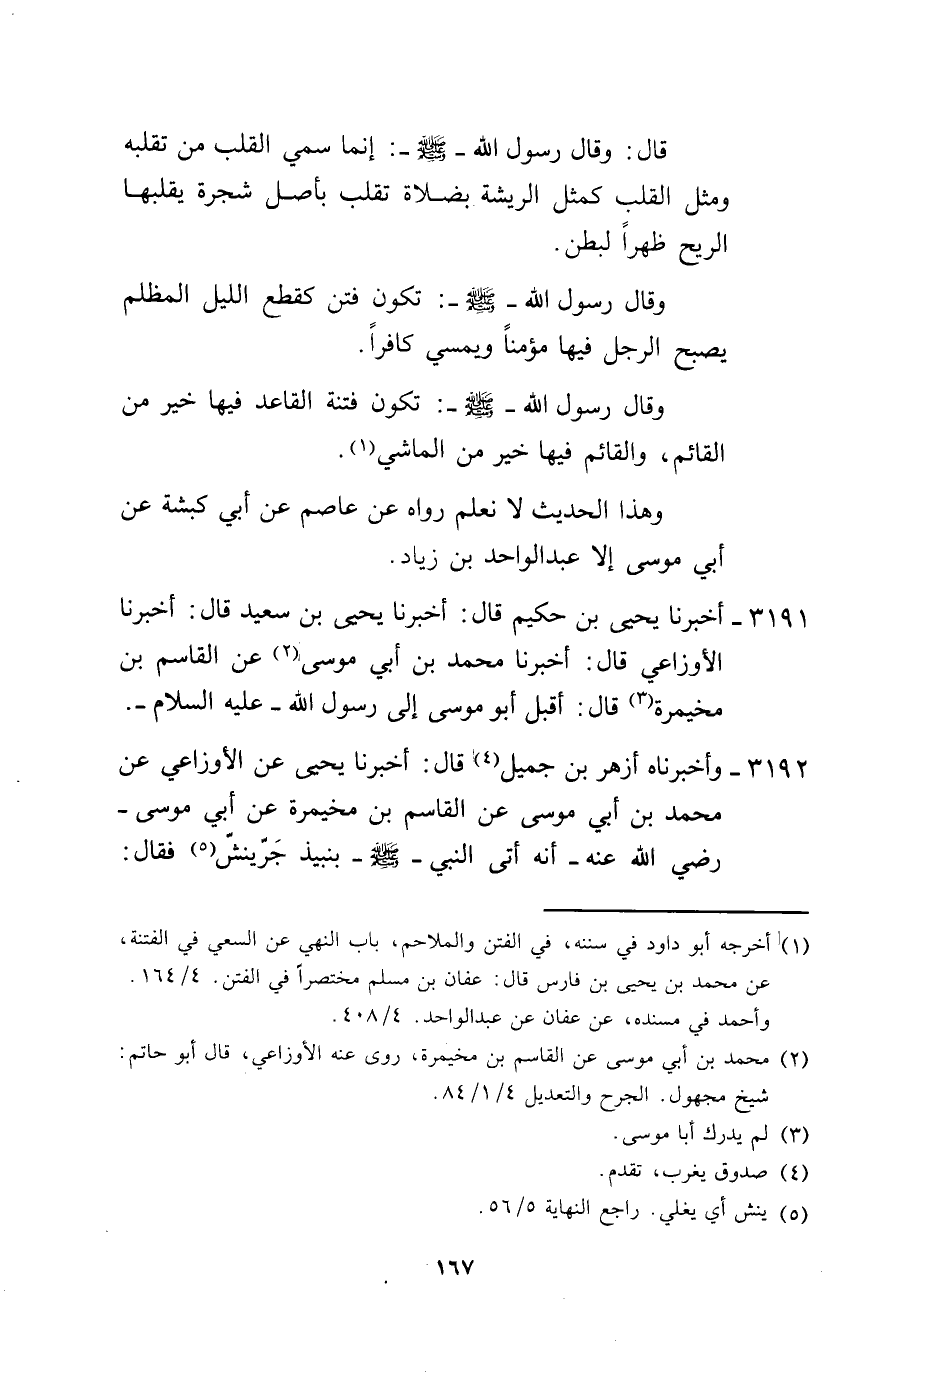 قال: وقال رسول الله ـ ﷺ ـ: إنما سمي القلب من تقلبه
ومثل القلب كمثل الريشة بضلاة تقلب بأصل شجرة يقلبها
الريح ظهراً لبطن.
وقال رسول الله ـ ﷺ ـ: تكون فتن كقطع الليل المظلم
يصبح الرجل فيها مؤمناً ويمسي كافراً.
وقال رسول الله ـ ﷺ ـ: تكون فتنة القاعد فيها خير من
القائم، والقائم فيها خير من الماشي(١).
وهذا الحديث لا نعلم رواه عن عاصم عن أبي كبشة عن
أبي موسى إلا عبدالواحد بن زياد.
٣١٩١ ـ أخبرنا يحيى بن حكيم قال: أخبرنا يحيى بن سعيد قال: أخبرنا
الأوزاعي قال: أخبرنا محمد بن أبي موسى(٢) عن القاسم بن
مخيمرة(٣) قال: أقبل أبو موسى إلى رسول الله ـ عليه السلام ـ.
٣١٩٢ ـ وأخبرناه أزهر بن جميل(٤) قال: أخبرنا يحيى عن الأوزاعي عن
محمد بن أبي موسى عن القاسم بن مخيمرة عن أبي موسى ـ
رضي الله عنه ـ أنه أتى النبي ـ ﷺ ـ بنبيذ جَرّينشّ(٥) فقال:
(١) أخرجه أبو داود في سننه، في الفتن والملاحم، باب النهي عن السعي في الفتنة،
عن محمد بن يحيى بن فارس قال: عفان بن مسلم مختصراً في الفتن. ٤/ ١٦٤.
وأحمد في مسنده، عن عفان عن عبدالواحد. ٤/ ٤٠٨.
(٢) محمد بن أبي موسى عن القاسم بن مخيمرة، روى عنه الأوزاعي، قال أبو حاتم:
شيخ مجهول. الجرح والتعديل ٤/ ١/ ٨٤.
(٣) لم يدرك أبا موسى.
(٤) صدوق يغرب، تقدم.
(٥) ينش أي يغلي. راجع النهاية ٥/ ٥٦.
١٦٧